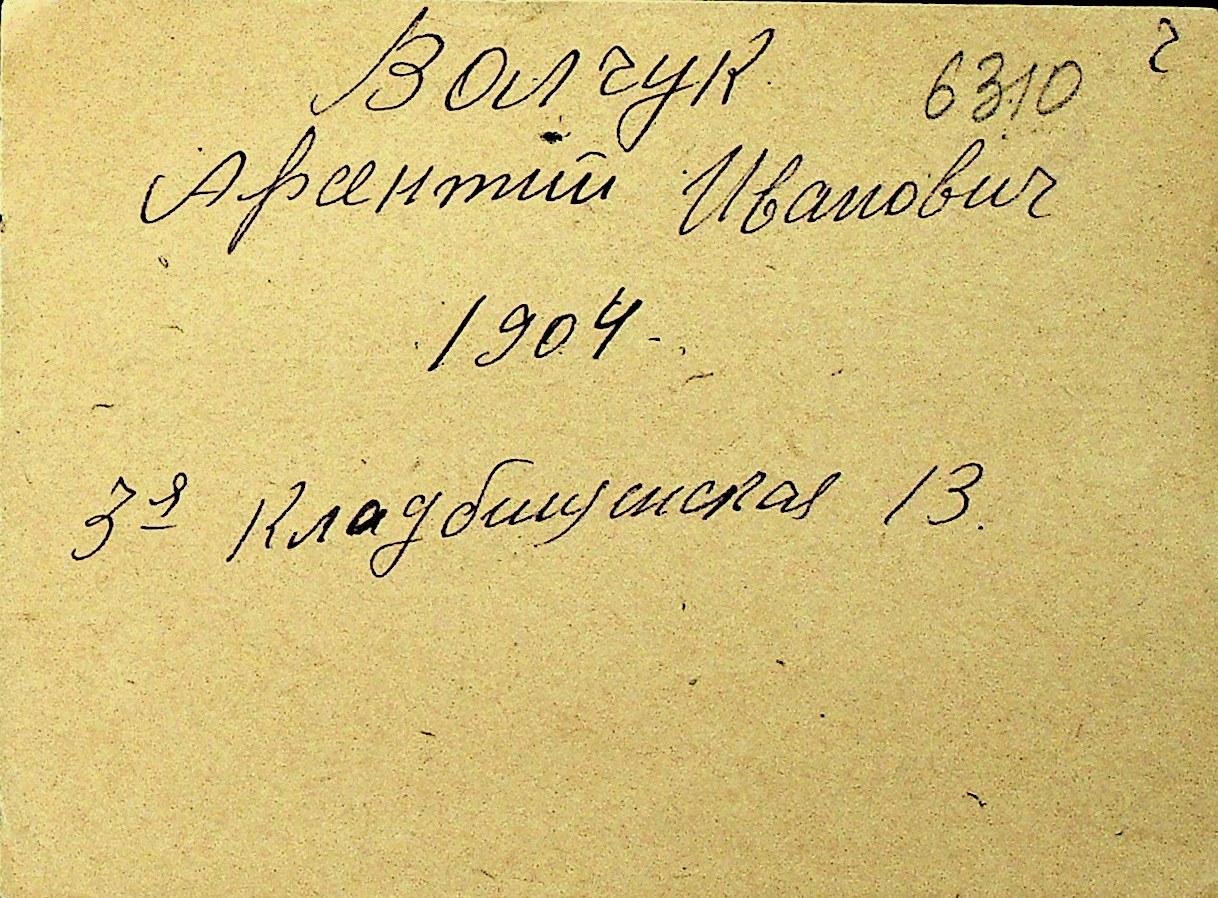 Волчук 6310 ч
Арсентий Иванович
1904
3я Кладбищенская 13.